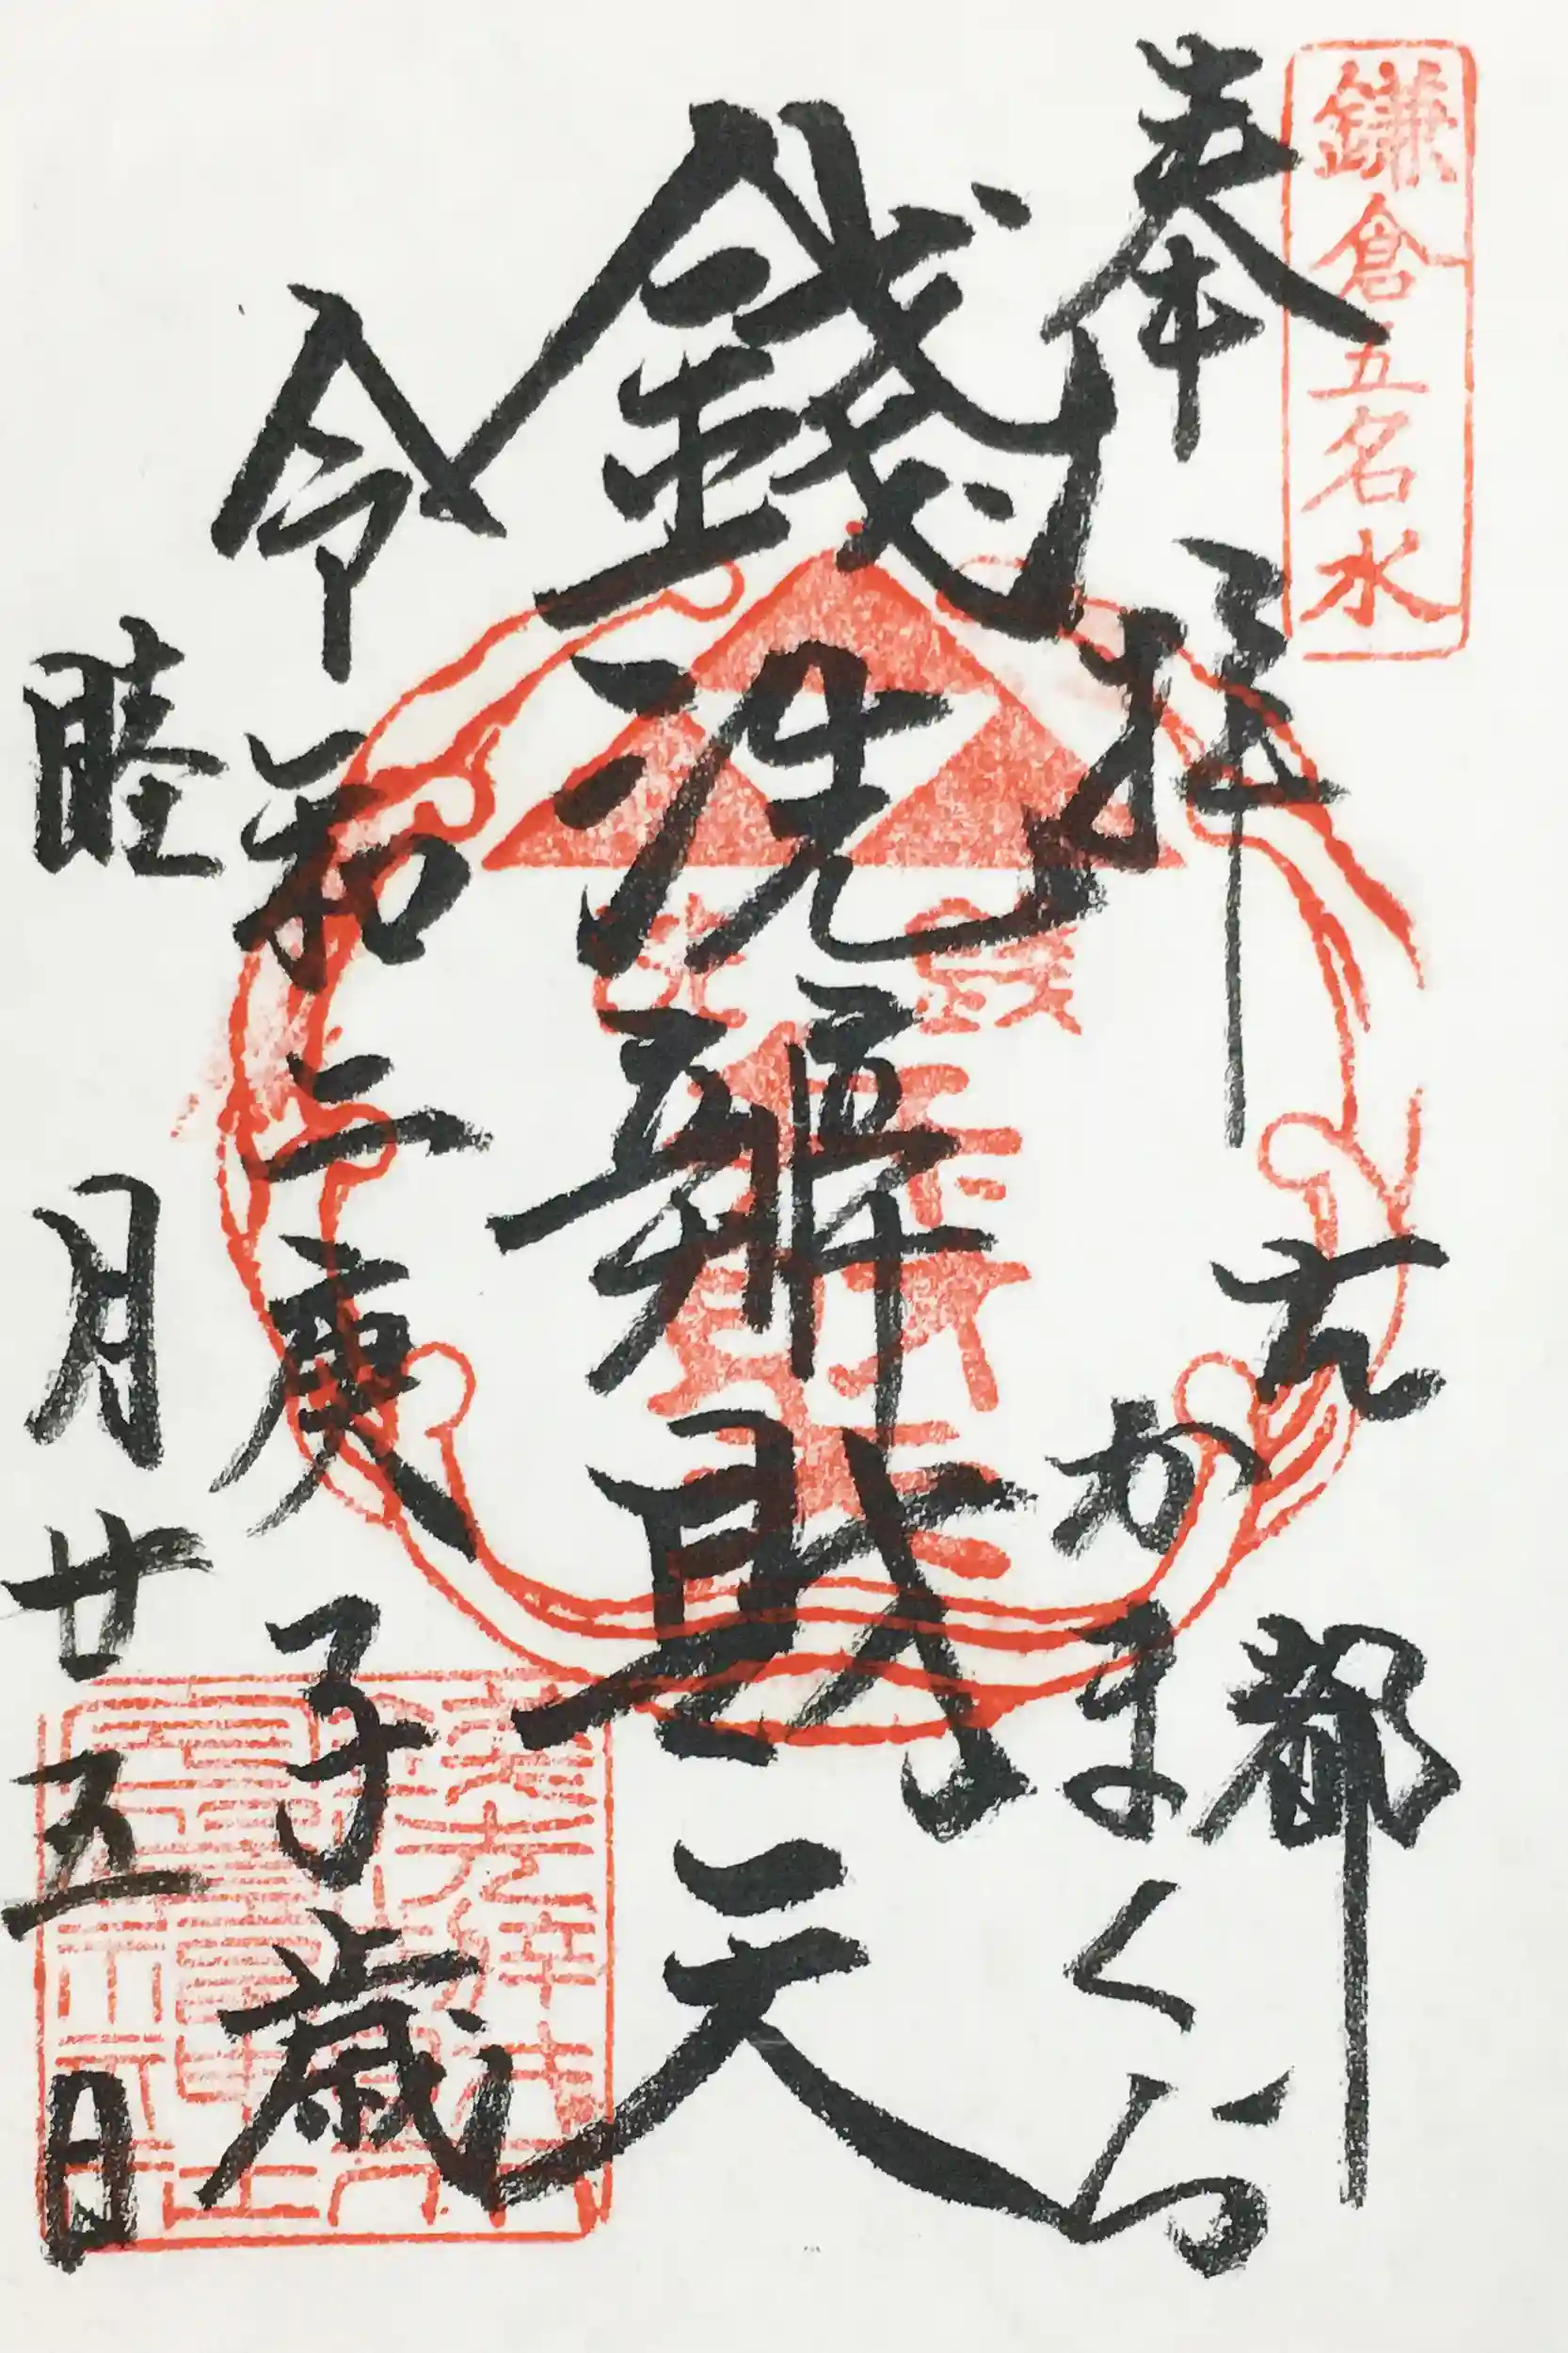 鎌倉五名水
奉拝
古都
かまくら
銭洗辨財天
令和二庚子歳
睦月廿五日